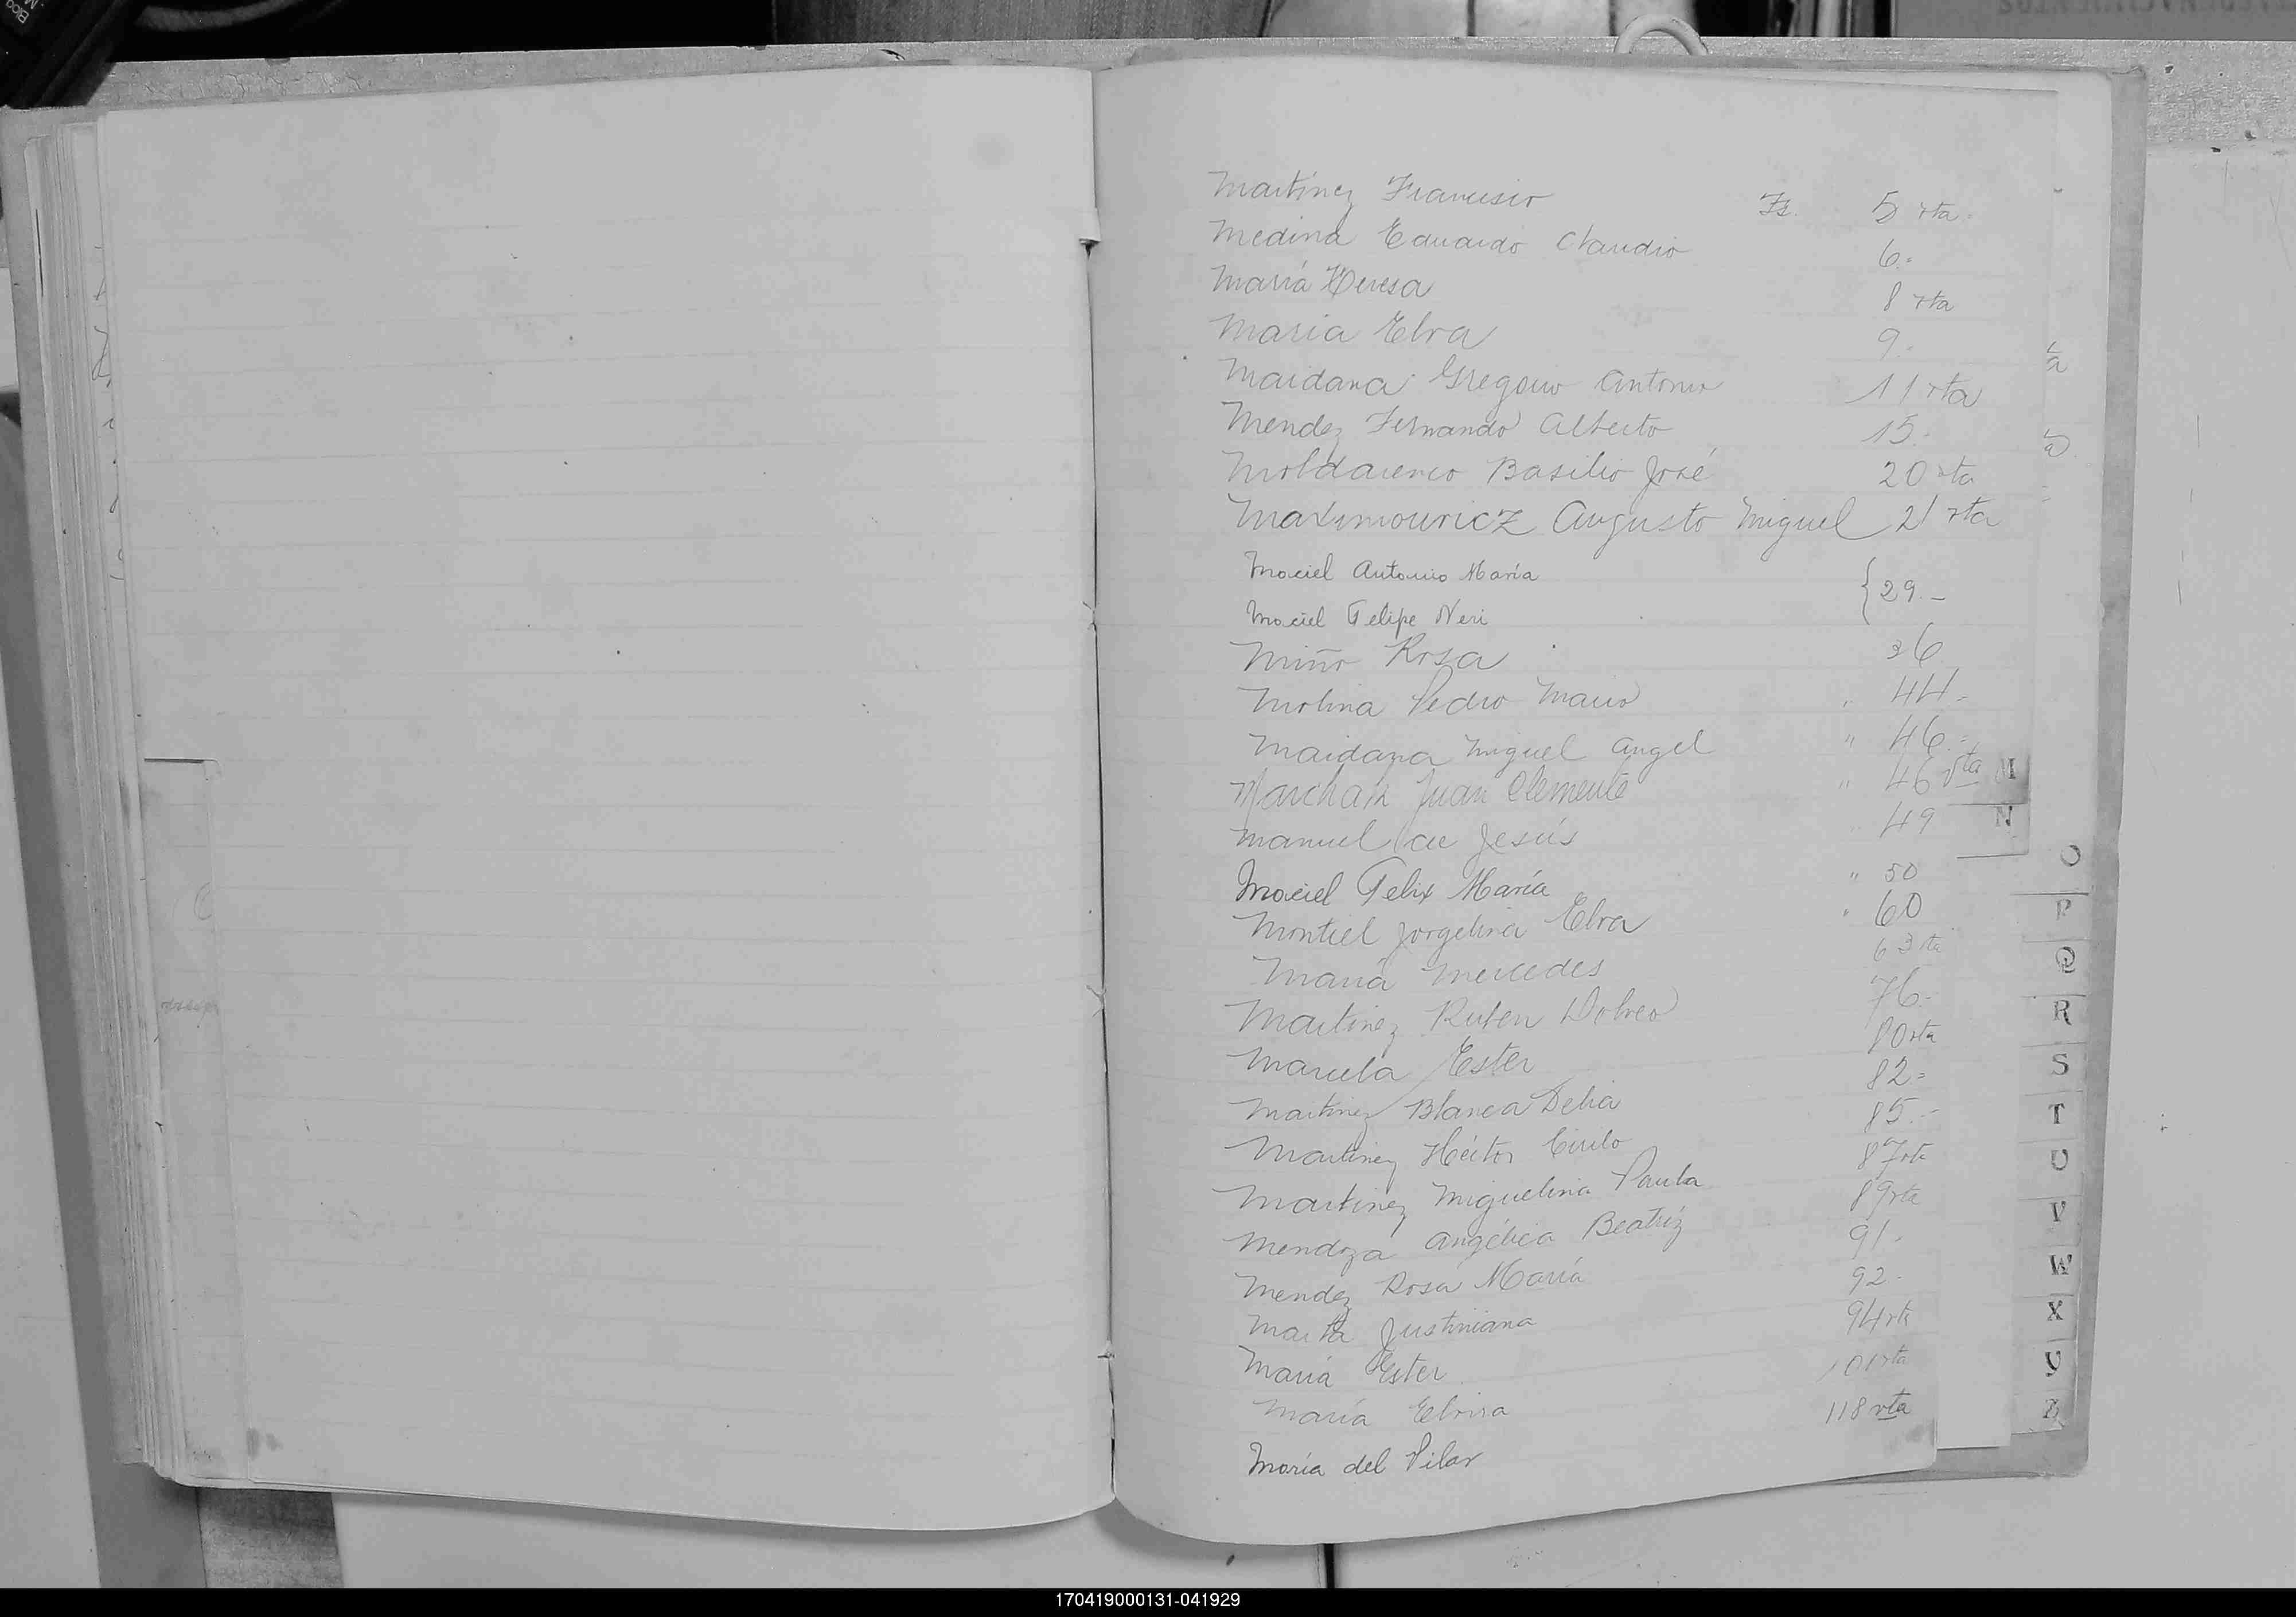 Martínez Francisco Fs. 5 vta.
Medina Eduardo Claudio 6.-
María Teresa 8 vta
María Elva 9.-
Maidana Gregorio Antonio 11 vta
Mendez Fernando Alberto 15.-
Moldarenco Basilio José 20 vta
Maximowricz Augusto Miguel 21 vta
Maciel Antonio María
{ 29.-
Maciel Felipe Neri
Miño Rosa 36
Molina Pedro Mario " 44.-
Maidana Miguel Angel " 46.-
Juan Clemente " 46 vta
Manuel de Jesús " 49
Maciel Felix María " 50
Montiel Jorgelina Elva " 60
María Mercedes 63 vta
Martinez Ruben Dolveo 76.-
Marcela Ester 80 vta
Martinez Blanca Delia 82.-
Martinez Héctor Cirilo 85.-
Martinez Miguelina Paula 87 vta
Mendoza Angélica Beatríz 89 vta
Mendez Rosa María 91.-
Marta Justiniana 92.-
María Ester 94 vta
María Elvira 101 vta
María del Pilar 118 vta
M
N
O
P
Q
R
S
T
U
V
W
X
Y
Z
170419000131-041929